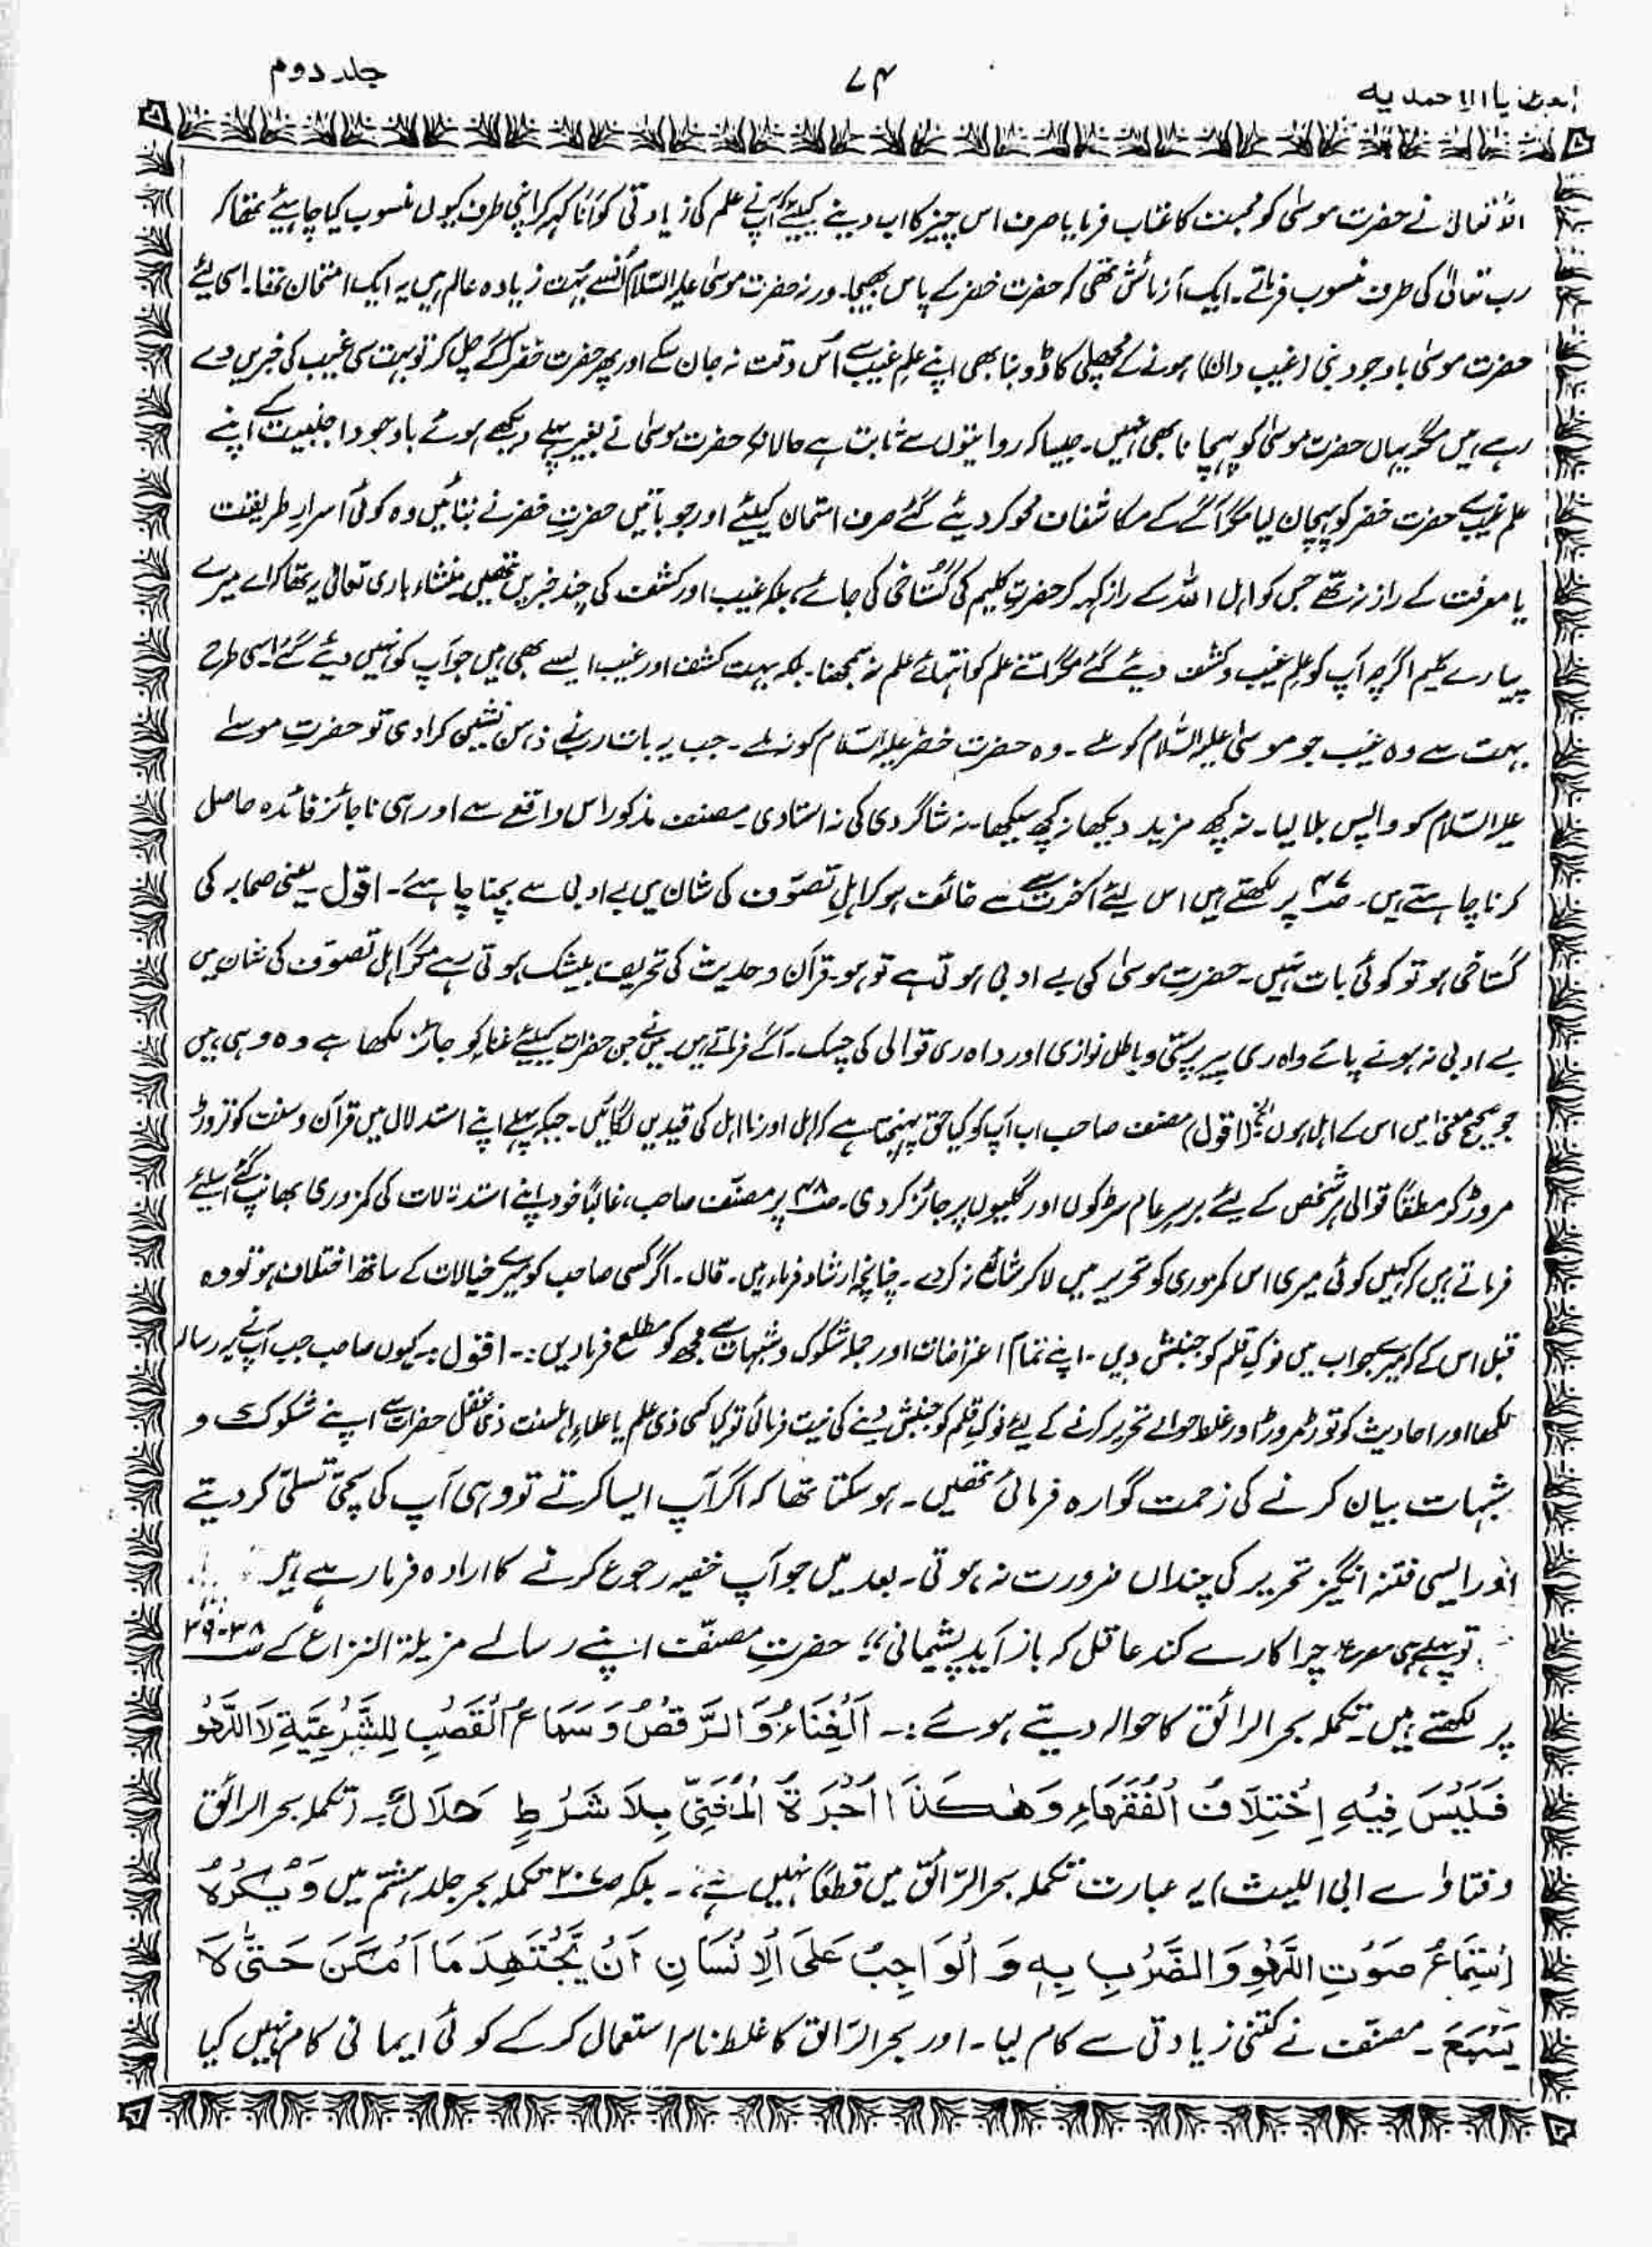 العطایا الاحمدیہ
۷۴
جلد دوم
اللہ تعالیٰ نے حضرت موسٰی کو محبت کا عتاب فرمایا صرف اس چیز کا اب دینے کیلیئے کہ آپنے علم کی زیادتی کو اَنَا کہہ کر اپنی طرف کیوں منسوب کیا چاہیئے تھا کہ
رب تعالیٰ کی طرف منسوب فرماتے۔ ایک آزمائش تھی کہ حضرت خضر کے پاس بھیجا۔ ورنہ حضرت موسٰی علیہ السّلام اُنسے بہت زیادہ عالم ہیں یہ ایک امتحان تھا۔ اسی لیئے
حضرت موسٰی باوجود نبی (غیب دان) ہونے کے مچھلی کا ڈوبنا بھی اپنے علمِ غیب سے اُس وقت نہ جان سکے اور پھر حضرت خضر آگے چل کر تو بہت سی غیب کی خبریں دے
رہے ہیں مگر یہاں حضرت موسٰی کو پہچانا بھی نہیں۔ جیسا کہ روایتوں سے ثابت ہے حالانکہ حضرت موسٰی نے بغیر پہلے دیکھے ہوئے باوجود اجنبیت کے اپنے
علم غیب سے حضرت خضر کو پہچان لیا مگر آگے کے مکاشفات محو کر دیئے گئے صرف امتحان کیلیئے اور جو باتیں حضرتِ خضر نے بتائیں وہ کوئی اَسرارِ طریقت
یا معرفت کے راز نہ تھے جس کو اہل اللہ کے راز کہہ کر حضرتِ کلیم کی گستاخی کی جائے، بلکہ غیب اور کشف کی چند خبریں تھیں۔ منشاء باری تعالیٰ یہ تھا کہ اے میرے
پیارے کلیم اگرچہ آپ کو علم غیب و کشف دیئے گئے مگر اتنے علم کو انتہائے علم نہ سمجھنا۔ بلکہ بہت کشف اور غیب ایسے بھی ہیں جو آپ کو نہیں دیئے گئے اسی طرح
بہت سے وہ غیب جو موسٰی علیہ السّلام کو ملے۔ وہ حضرت خضر علیہ السّلام کو نہ ملے۔ جب یہ بات رب نے ذہن نشین کرا دی تو حضرتِ موسٰے
علیہ السّلام کو واپس بلا لیا۔ نہ کچھ مزید دیکھا نہ کچھ سیکھا۔ نہ شاگردی کی نہ استادی۔ مصنف مذکور اس واقعے سے اور ہی ناجائز فائدہ حاصل
کرنا چاہتے ہیں۔ صـ۴۷ پر لکھتے ہیں اس لیئے آخرت سے خائف ہو کر اہلِ تصوّف کی شان میں بے ادبی سے بچنا چاہئے۔ اقول۔ یعنی صحابہ کی
گستاخی ہو تو کوئی بات نہیں۔ حضرتِ موسٰی کی بے ادبی ہوتی ہے تو ہو۔ قرآن و حدیث کی تحریف بیشک ہوتی رہے مگر اہل تصوّف کی شان میں
بے ادبی نہ ہونے پائے واہ ری پیر پرستی و باطل نوازی اور واہ ری قوالی کی چسک۔ آگے فرماتے ہیں۔ میں نے جن حضرات کیلیئے غنا کو جائز لکھا ہے وہ وہی ہیں
جو صحیح معنیٰ میں اس کے اہل ہوں الخ (اقول) مصنف صاحب اب آپ کو کیا حق پہنچتا ہے کہ اہل اور نا اہل کی قیدیں لگائیں۔ جبکہ پہلے اپنے استدلال میں قرآن و سنت کو توڑ
مروڑ کر مطلقًا قوالی ہر شخص کے لیئے برسرِ عام سڑکوں اور گلیوں پر جائز کر دی۔ صـ۴۸ پر مصنّف صاحب، غالبًا خود اپنے استدلالات کی کمزوری بھانپ گئے اسلیئے
فرماتے ہیں کہ کہیں کوئی میری اس کمزوری کو تحریر میں لا کر شائع نہ کر دے۔ چنانچہ ارشاد فرما ہیں۔ قال۔ اگر کسی صاحب کو میرے خیالات کے ساتھ اختلاف ہو تو وہ
قبل اس کے کہ میرے جواب میں نوکِ قلم کو جنبش دیں۔ اپنے تمام اعتراضات اور جملہ شکوک و شبہات سے مجھ کو مطلع فرما دیں:۔ اقول۔ کیوں صاحب جب آپ نے یہ رسالہ
لکھا اور احادیث کو توڑ مروڑ اور غلط حوالے تحریر کرنے کے لیئے نوکِ قلم کو جنبش دینے کی نیت فرمائی تو کیا کسی ذی علم یا علماءِ اہلسنت ذی عقل حضرات سے اپنے شکوک و
شبہات بیان کرنے کی زحمت گوارہ فرمائی تھیں۔ ہو سکتا تھا کہ اگر آپ ایسا کرتے تو وہی آپ کی سچی تسلّی کر دیتے
اور ایسی فتنہ انگیز تحریر کی چنداں ضرورت نہ ہوتی۔ بعد میں جو آپ خفیہ رجوع کرنے کا ارادہ فرما رہے ہیں
تو پہلے ہی مصرعہ چرا کارے کند عاقل کہ باز آید پشیمانی؛؛ حضرتِ مصنّف اپنے رسالے مزیلۃ النزاع کے صـ۳۸-۳۹
پر لکھتے ہیں۔ تکملہ بحر الرائق کا حوالہ دیتے ہوئے:۔ اَلْغِنَاءُ وَالرَّقْصُ وَسَمَاعُ الْقَصْبِ لِلشَّرْعِيَّةِ لَا اللَّهْو
فَلَيْسَ فِيْهِ اِخْتِلَافُ الْفُقَهَاءِ وَهٰكَذَا اُجْرَةُ الْمُغَنِّي بِلَا شَرْطٍ حَلَالٌ۔ (تکملہ بحر الرائق
وفتاوٰے ابی اللیث) یہ عبارت تکملہ بحر الرّائق میں قطعًا نہیں ہے۔ بلکہ صـ۲۰۷ تکملہ بحر جلد ہشتم میں وَيُكْرَهُ
اِسْتِمَاعُ صَوْتِ اللَّهْوِ وَالضَّرْبِ بِهٖ وَالْوَاجِبُ عَلَى الْاِنْسَانِ اَنْ يَّجْتَهِدَ مَا اَمْكَنَ حَتّٰى لَا
يَسْمَعَ۔ مصنّف نے کتنی زیادتی سے کام لیا۔ اور بحر الرّائق کا غلط نام استعمال کر کے کوئی ایمانی کام نہیں کیا